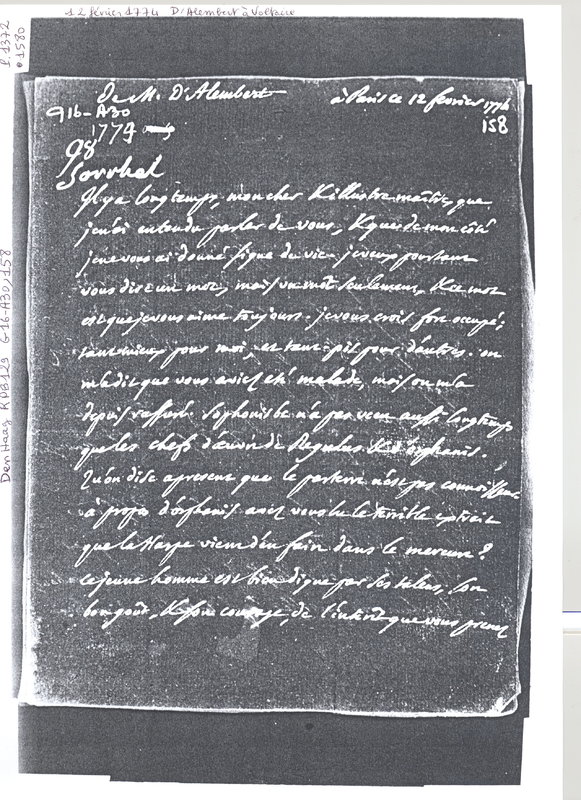 12 février 1774 D'Alembert à Voltaire
De M. D'Alembert
à Paris ce 12 fevrier 1774
158
G16-A30
1774
98
Il y a longtemps, mon cher & illustre maître, que
je n'ai entendu parler de vous, & que de mon côté
je ne vous ai donné signe de vie. je veux pourtant
vous dire un mot, mais un mot seulement, & ce mot
est que je vous aime toujours. je vous crois fort occupé;
tant mieux pour moi, et tant-pis pour d'autres. on
m'a dit que vous aviez été malade, mais on m'a
depuis rassuré. Sophonisbe n'a pas vecu aussi longtemps
que les chefs d'œuvre de Regulus & d'orphanis.
Qu'on dise apresent que le parterre n'est pas connoisseur
à propos d'orphanis avez vous lu le terrible extrait
que la Harpe vient d'en faire dans le mercure?
ce jeune homme est bien digne par ses talens, son
bon goût, & son courage, de l'interêt que vous prenez
L1372
1580
Den Haag RPB129 G16-A30, 158